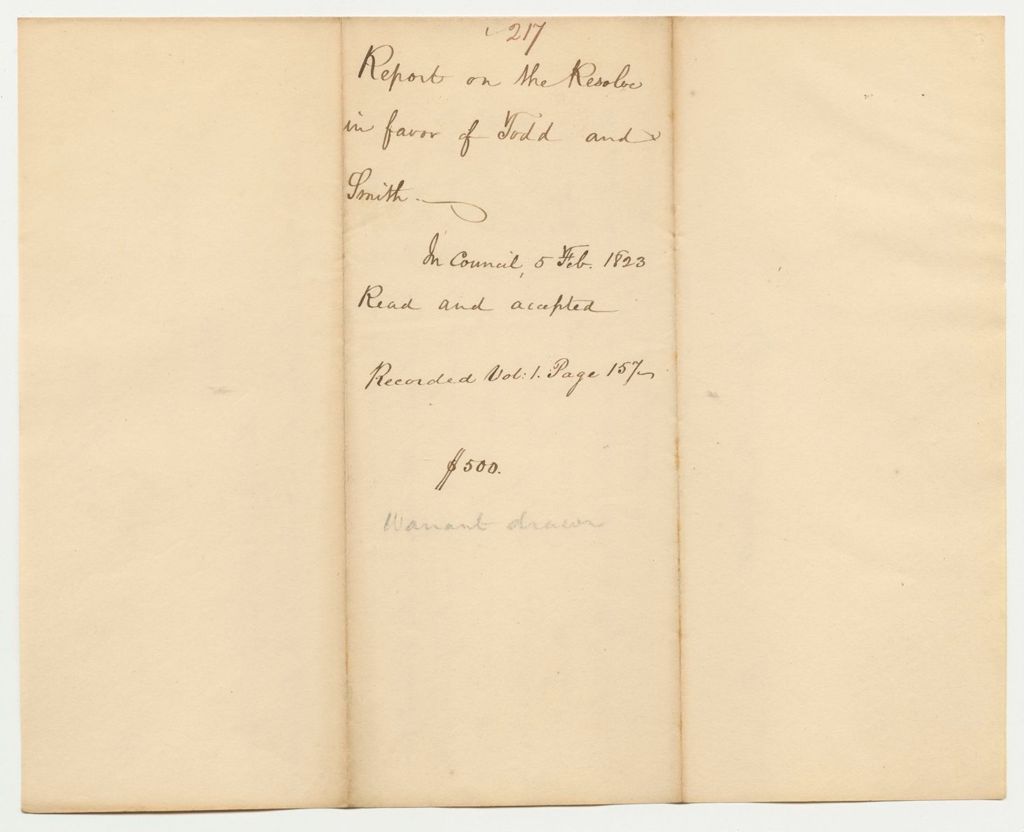 217
Report on the Resolve
in favor of Todd and
Smith.
In Council, 5 Feb. 1823
Read and accepted
Recorded Vol: 1. Page 157
$500.
Warrant drawn